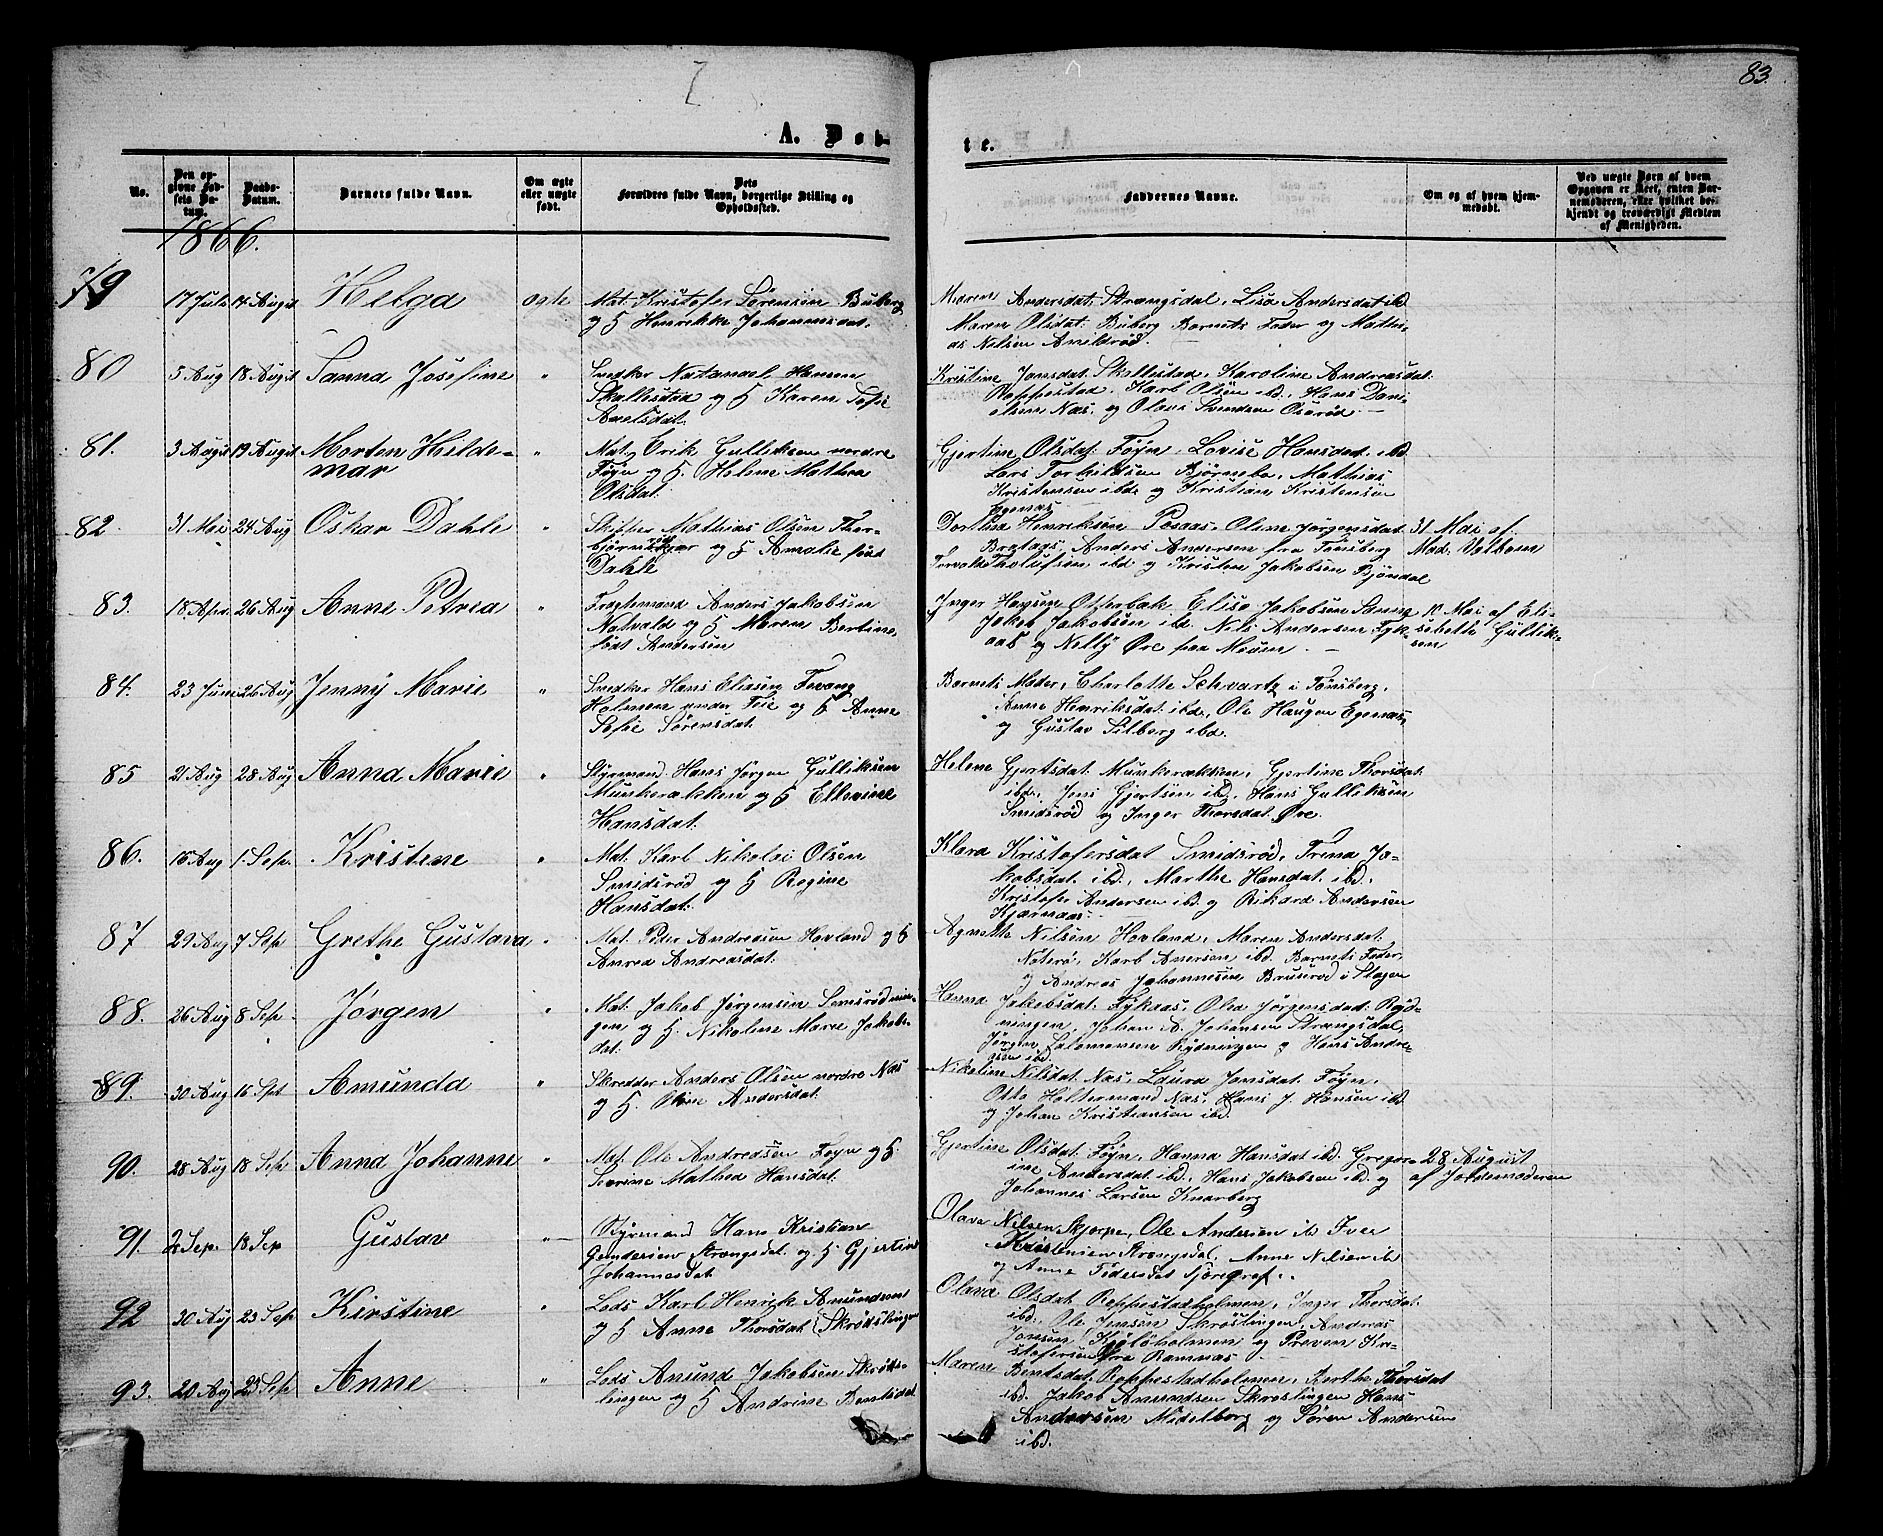 83.
A. Døb-
te.
No.
Den opgivne Fødsels Datum.
Daabs-Datum.
Barnets fulde Navn.
Om ægte eller uægte født.
Dets Forældres fulde Navn, borgerlige Stilling og Opholdssted.
Faddernes Navne.
Om og af hvem hjemmedøbt.
Ved uægte Børn af hvem Opgaven er skeet, enten Barnemoderen, eller hvilket bekjendt og troværdigt Medlem af Menigheden.
1866.
79 17 Juli 14 Augst Helga ægte Mat. Kristofer Sørensen Buberg
og H Henrikke Johannesdat.
Maren Andersdat. Strængsdal, Lisa Andersdat ibd
Maren Olsdat. Buberg Barnets Fader og Mathi-
as Nilsen
80 5 Aug 18 Augst Sanna Josefine " Snedker Natanael Hansen
Skallestad og H Karen Sofie
Axelsdat.
Kristine Jonsdat. Skallestad, Karoline Andreasdat.
Roppestad, Karl Olsen ibd., Hans Dani-
elsen Næs, og Olaus Svendsen Oserød.
81. 3 Augst 19 Augst Morten Hilde-
mar " Mat. Erik Gulliksen nordre
Føyn og H. Helene Mathea
Olsdat.
Gjertine Olsdat. Føyn, Lovise Hansdat. ibd
Lars Torkildsen Bjørnebo, Mathias
Kristensen ibd. og Kristian Kristensen
Egenæs
82. 31 Mai 24 Aug Oskar Dahle " Skipper Mathias Olsen Thor-
bjørnskjær og H Amalie født
Dahle
Dortina Henriksen Posaas, Oline Jørgensdat.
Brataas, Anders Andersen fra Tønsberg
Torvald Tholufsen ibd og Kristen Jakobsen Bjøndal
31 Mai af
Mad. Volbom
83. 18 Apr. 26 Aug Anne Petrea " Fragtemand Anders Jakobsen
Natvald og H Maren Bertine
født Andersen
Inger Hansen Otterbæk Elise Jakobsen Sanne
Jakob Jakobsen ibd. Nils Andersen Fyk-
aas og Nelly Øre paa Meum.
10 Mai af Eli-
sebette Gullik-
sen
84. 23 Juni 26 Aug Jenny Marie " Snedker Hans Eliasen Fevang
Holmen under Teie og H Anne
Sofie Sørensdat.
Barnets Moder, Charlotte Schvartz i Tønsberg,
Anne Henriksdat. ibd., Ole Haugen Egenæs,
og Gustav Silberg ibd.
85 21 Aug 28 Aug Anna Marie " Styrmand Hans Jørgen Gulliksen
Munkerækken og H Ellevine
Hansdat.
Helene Gjertsdat. Munkerækken, Gjertine Thorsdat.
ibd., Jens Gjertsen ibd., Hans Gulliksen
Smidsrød og Inger Thorsdat. Øre.
86. 16 Aug 1 Sep. Kristine " Mat. Karl Nikolai Olsen
Smidsrød og H Regine
Hansdat.
Klara Kristofersdat Smidsrød, Trena Ja-
kobsdat. ibd., Marthe Hansdat. ibd.,
Kristofer Andersen ibd. og Rikard Andersen
Kjærnaas
87 29 Aug 7 Sep Grethe Gustava " Mat. Peder Andreasen Hovland og H
Anrea Andreasdat.
Agnethe Nilsen Hovland, Maren Andersdat.
Noterø, Karl Anersen ibd. Barnets Fader,
og Andreas Johannessen Brusrød i Slagen
88. 26 Aug 8 Sep. Jørgen " Mat. Jakob Jørgensen Semsrød nin-
gen og H. Nikoline Marie Jakobs-
dat.
Hanna Jakobsdat. Fykaas, Olea Jørgensdat. Ryd-
ningen, Johan A. Johansen Strængsdal,
Jørgen Salomonsen Rydningen og Hans Andre-
asen ibd.
89. 30 Aug 16 Spt Amunda " Skredder Anders Olsen nordre Næs
og H. Oline Andersdat.
Nikoline Nilsdat. Næs, Laura Jonsdat. Føyn,
Otto Holtermand Næs, Hans J. Hansen ibd
og Johan Kristiansen ibd.
90. 28 Aug 18 Sep Anna Johanne " Mat. Ole Andreasen Føyn og H.
Severine Mathea Hansdat.
Gjertine Olsdat. Føyn, Hanna Hansdat ibd. Gregor-
ine Andersdat. ibd., Hans Jakobsen ibd. og
Johannes Larsen Knarberg
28 August
af Jordemoderen
91. 2 Sep. 18 Sep Gustav " Styrmand Hans Kristian
Gundersen Strængsdal og H Gjertine
Johannesdat
Olava Nilsen Skjerpe, Ole Andersen ib Iver
Kristensen Strængsdal, Anne Nilsen ib
og Anne Pedersdat
92 30 Aug 23 Sep Kirstine " Lods Karl Henrik Amundsen
og H Anne Thorsdat. Skrøslingen
Olava Olsdat Roppestadholmen, Inger Thorsdat.
ibd., Ole Jensen Skrøslingen, Andreas
Jonsen Kjøløholmen og Preven Kri-
stofersen fra Ramnæs
93. 20 Aug 23 Sep Anne " Lods Amund Jakobsen Skrøs-
lingen og H Andrine Bentsdat
Maren Bentsdat. Roppestadholmen, Berthe Thorsdat
ibd. Jakob Amundsen Skrøslingen Hans
Andersen Midelborg og Søren Andersen
ibd.